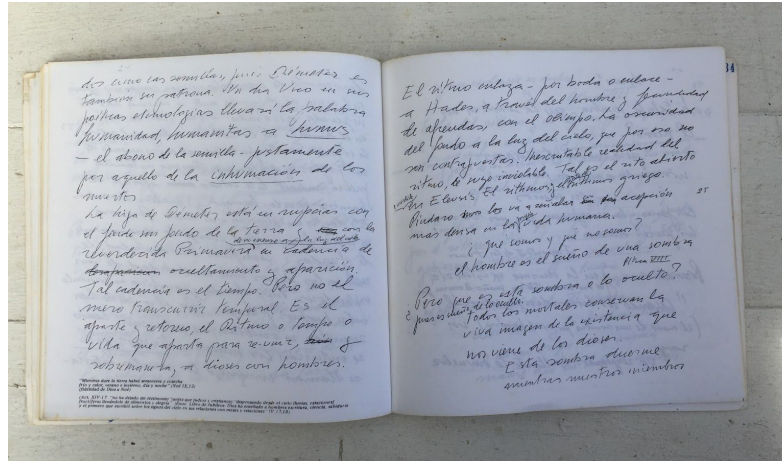 dos como las semillas, pues Démeter es
también su patrona. Un día Vico en sus
poéticas etimologías llevará la palabra
humanidad, humanitas a humus
– el abono de la semilla – justamente
por aquello de la inhumación de los
muertos
La hija de Demeter está en nupcias con
el fondo sin fondo de la tierra y con la
reverdecida Primavera en cadencia de
descenso y luz
ocultamiento y aparición.
Tal cadencia es el tiempo. Pero no el
mero transcurrir temporal. Es el
aparte y retorno, el Ritmo o tempo o
vida que aparta para re-unir, y
sobremanera, a dioses con hombres.
"Mientras dure la tierra habrá sementera y cosecha
frío y calor, verano e invierno, día y noche" (Gen 8,22)
34
El ritmo enlaza – por boda o enlace –
a Hades, a través del hombre y fecundidad
de ofrendas, con el olimpo. La oscuridad
del fondo a la luz del cielo, que por eso no
son contrapuestas. Inescrutable realidad del
ritmo, de suyo inviolable. Tal es el rito abierto
en Eleusis. El rithmos griego.
Píndaro nos los va a señalar acepción
más densa en la vida humana.
¿Qué somos y qué no somos?
el hombre es el sueño de una sombra
Pítica VIII
Pero qué es esta sombra o lo oculto?
Todos los mortales conservan la
viva imagen de la existencia que
nos viene de los dioses.
Esta sombra duerme
mientras nuestros miembros